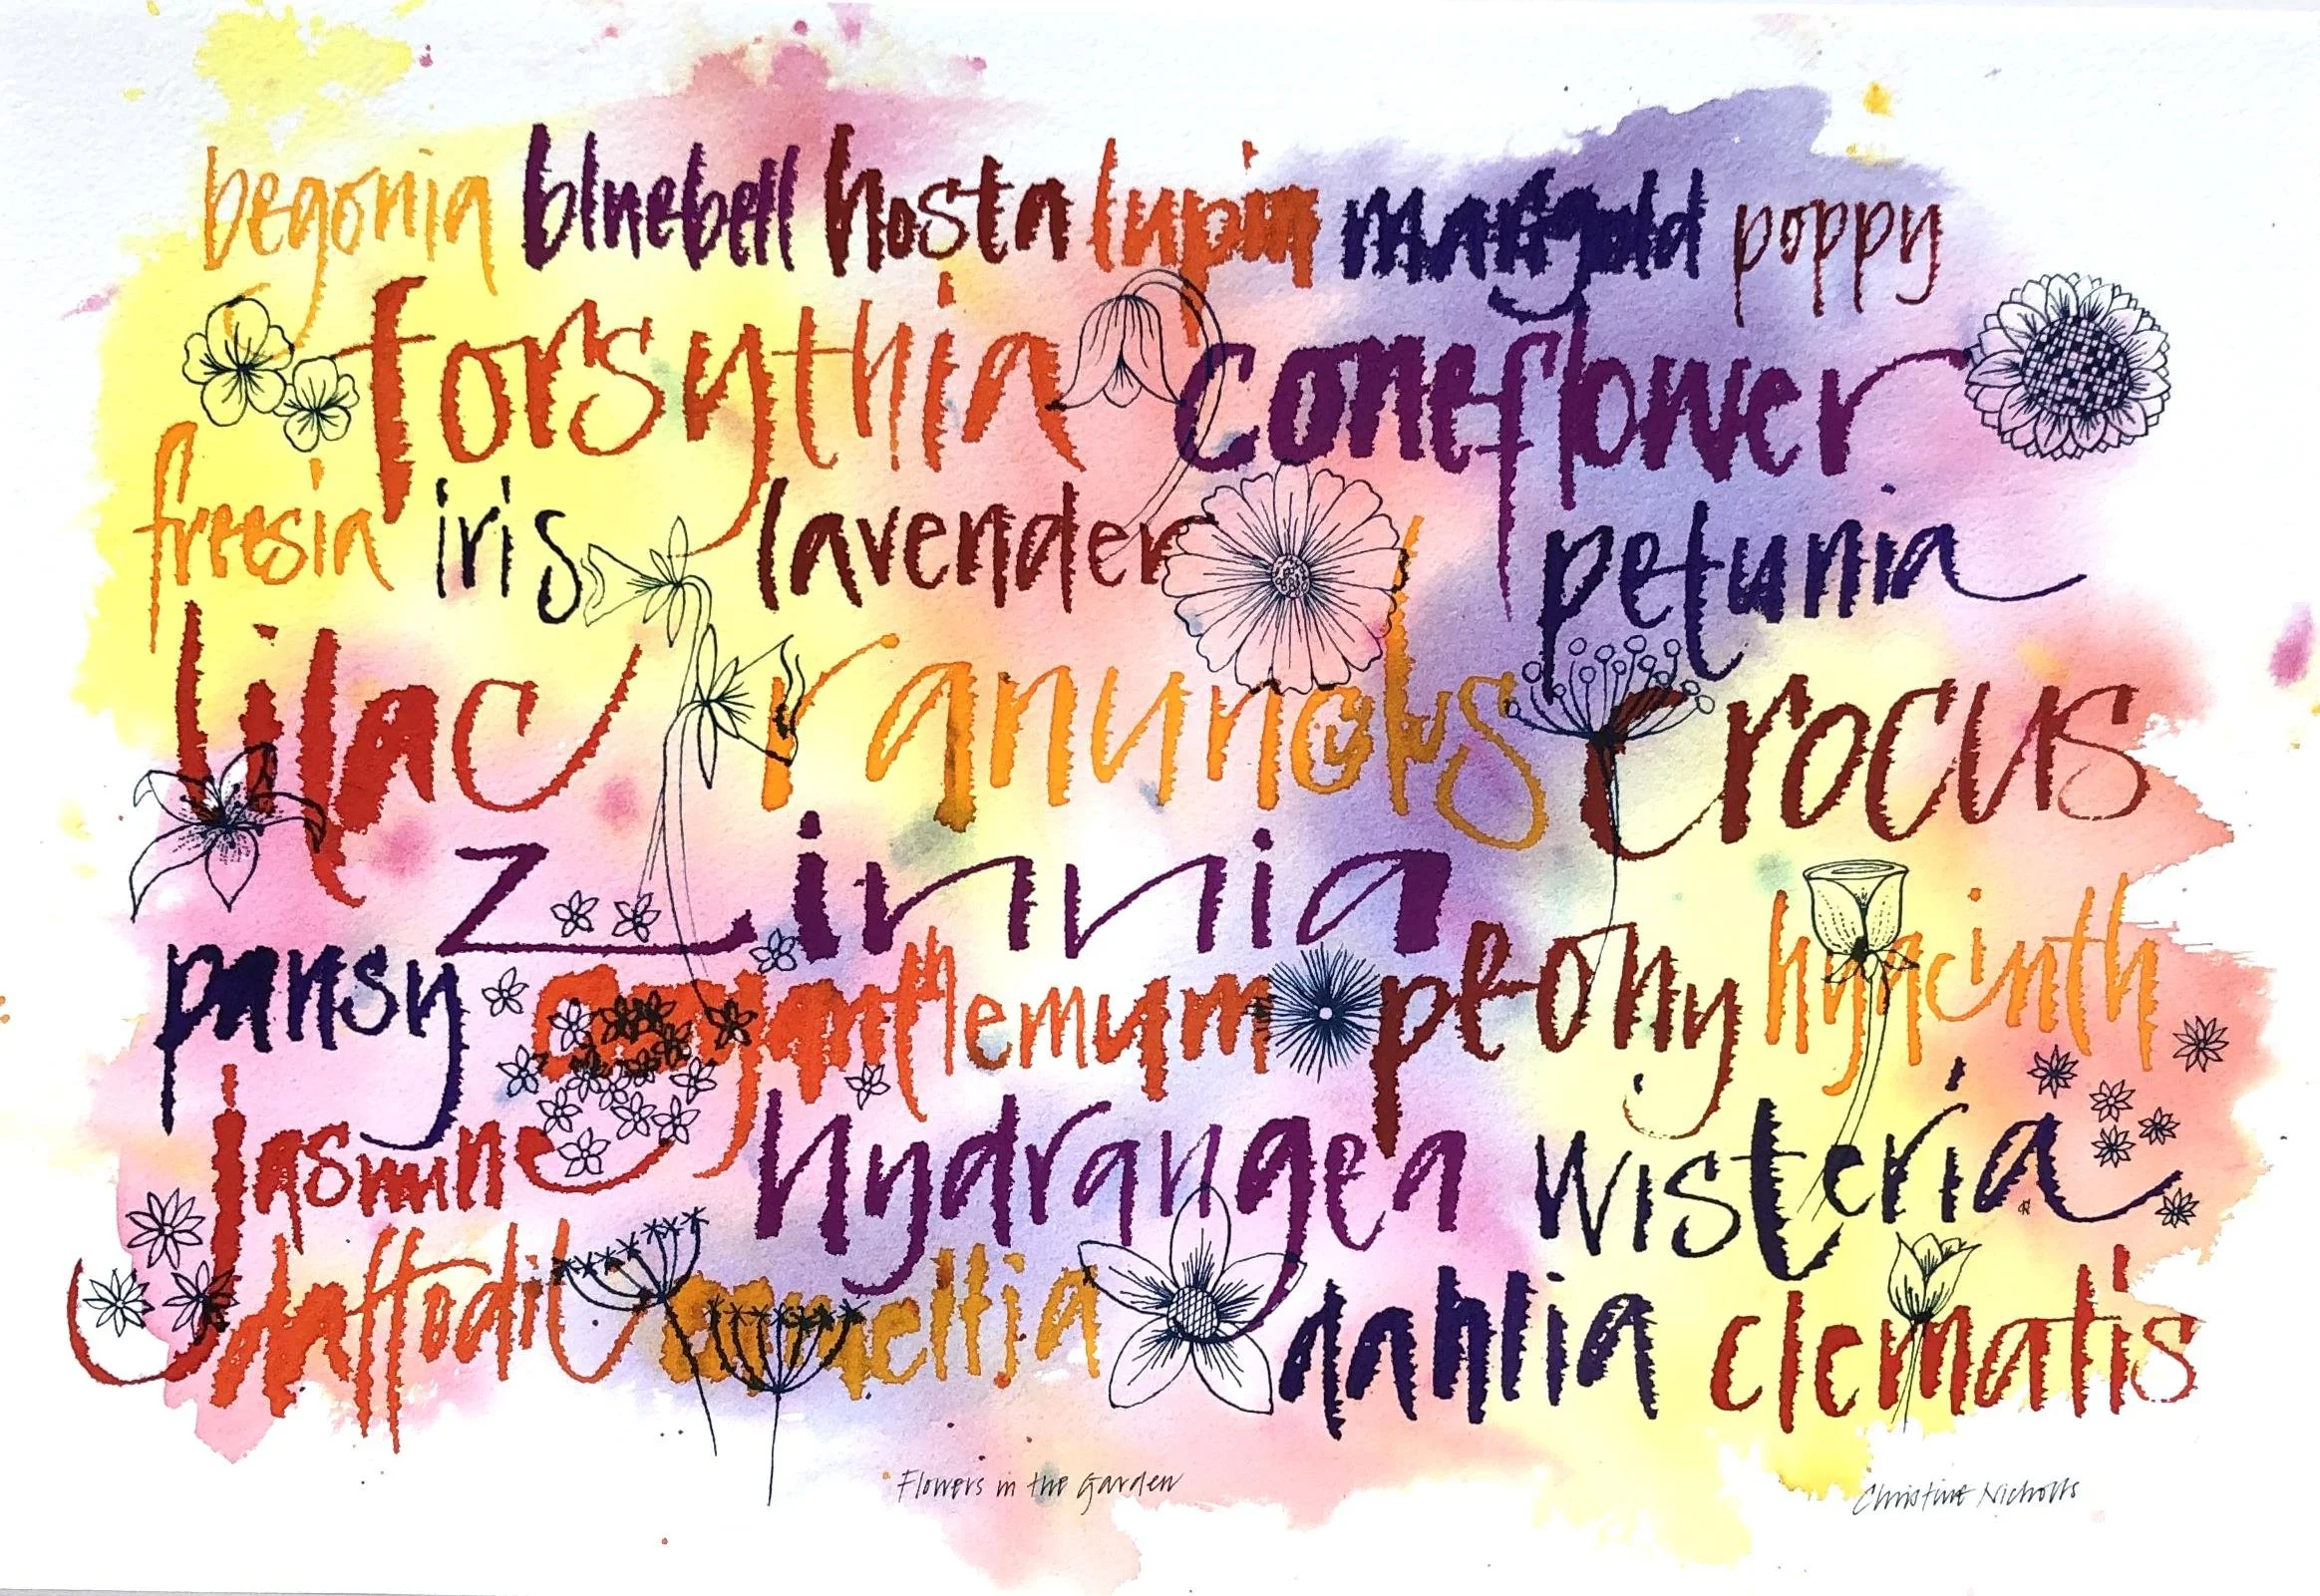 begonia bluebell hosta lupin marigold poppy
forsythia coneflower
freesia iris lavender petunia
lilac ranunculus crocus
zinnia
pansy chrysanthemum peony hyacinth
jasmine hydrangea wisteria
daffodil camellia dahlia clematis
Flowers in the Garden Christine Nicholls